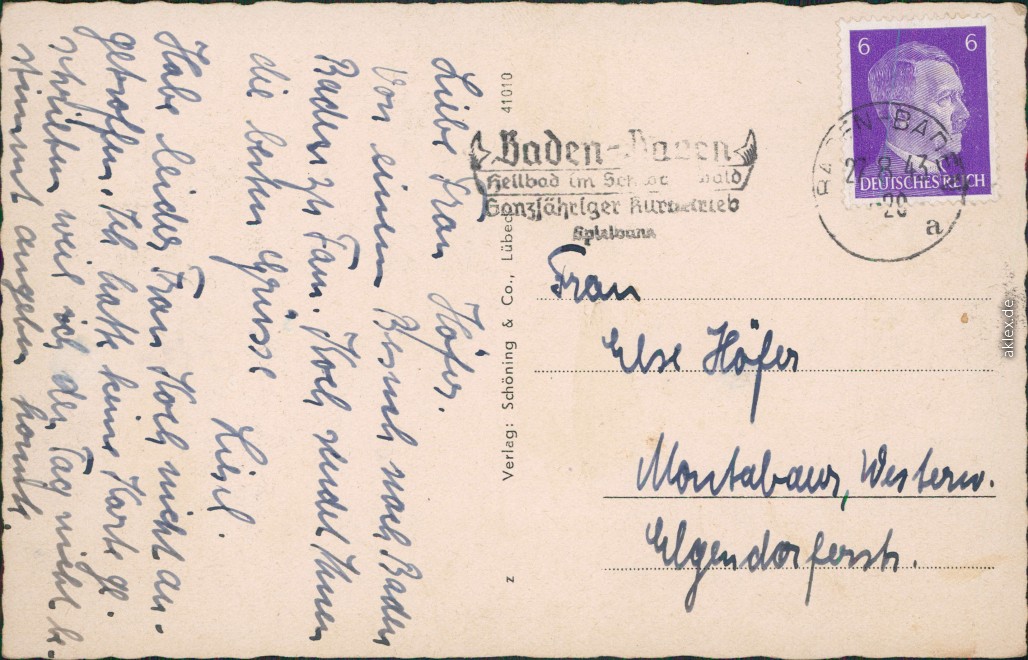 Liebe Frau Höfer.
Von einem Besuch nach Baden
Baden zu Fam. Koch sendet Ihnen
die besten Grüsse
Liesel.
Habe leider Frau Koch nicht an-
getroffen. Ich hatte keine Karte ge-
schrieben weil ich den Tag nicht be-
stimmt angeben konnte.
Verlag: Schöning & Co., Lübeck
41010
z
Baden-Baden
Heilbad im Schwarzwald
Ganzjähriger Kurbetrieb
Spielbank
6 6
DEUTSCHES REICH
BADEN-BADEN
27.8.43
-20
a
Frau
Else Höfer
Montabaur, Westerw.
Elgendorferstr.
aklex.de